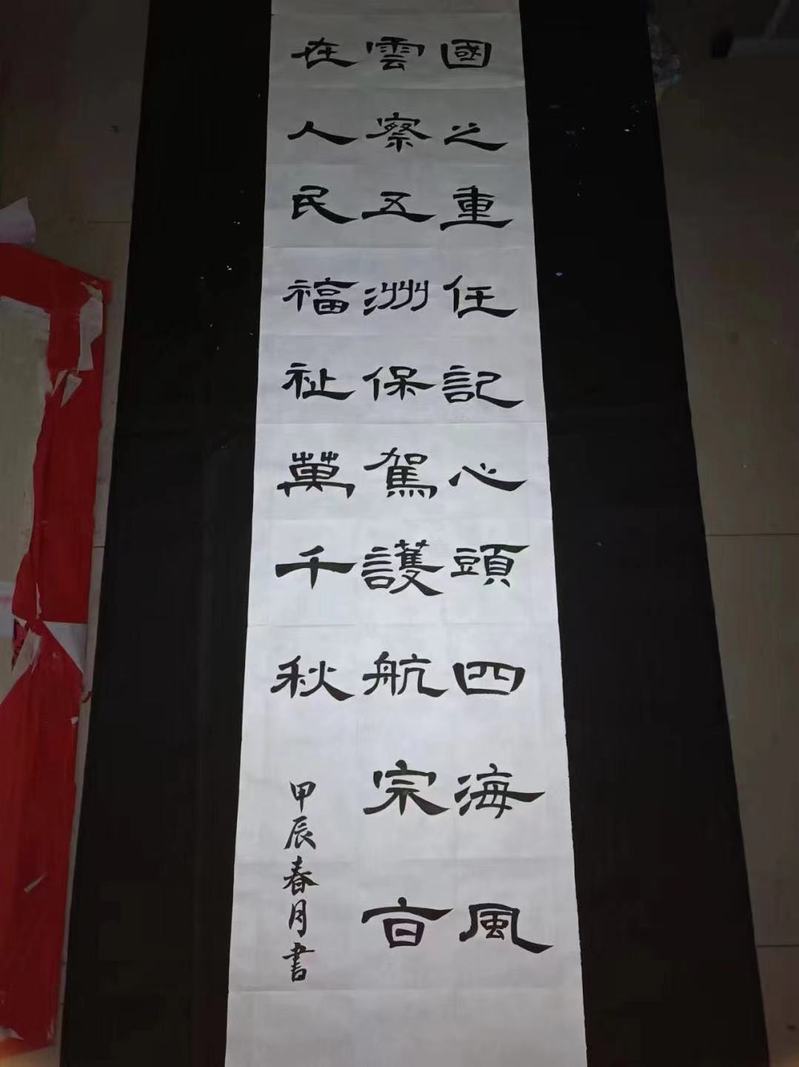 國之重任記心頭四海風
雲察五洲保駕護航宗旨
在人民福祉萬千秋
甲辰春月書